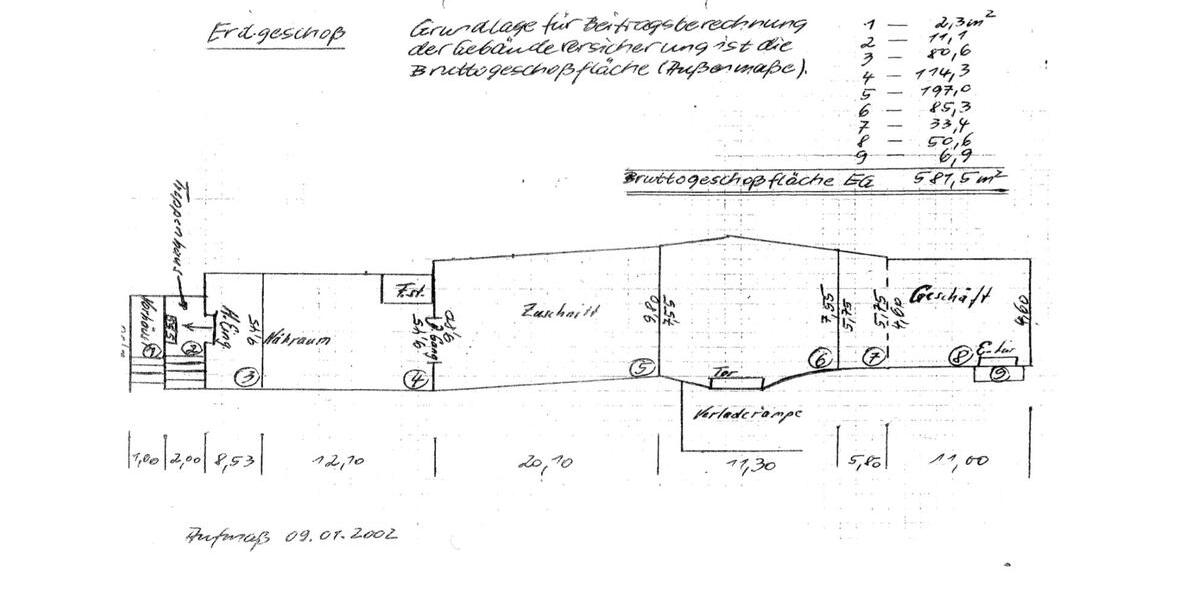 Erdgeschoß
Grundlage für Beitragsberechnung
der Gebäudeversicherung ist die
Bruttogeschoßfläche (Außenmaße).
1 — 2,3 m²
2 — 11,1
3 — 80,6
4 — 114,3
5 — 197,0
6 — 85,3
7 — 33,4
8 — 50,6
9 — 6,9
Bruttogeschoßfläche EG 581,5 m²
Treppenhaus
Vorhäusl
1
5,55
2
H.Eing.
9,45
3
Nähraum
F.st.
9,45
4
9,80
Zuschnitt
9,80
5
7,55
Tor
Verladerampe
7,55
6
5,75
5,75
7
4,60
Geschäft
4,60
8
E-tür
9
1,00
2,00
8,53
12,10
20,10
11,30
5,80
11,00
Aufmaß 09.01.2002